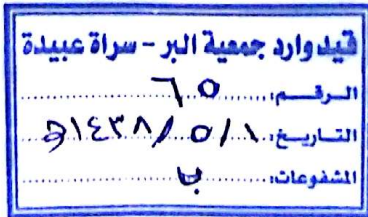 قيد وارد جمعية البر - سراة عبيدة
الرقم: ٦٥
التاريخ: ١/٥/١٤٣٨هـ
المشفوعات: